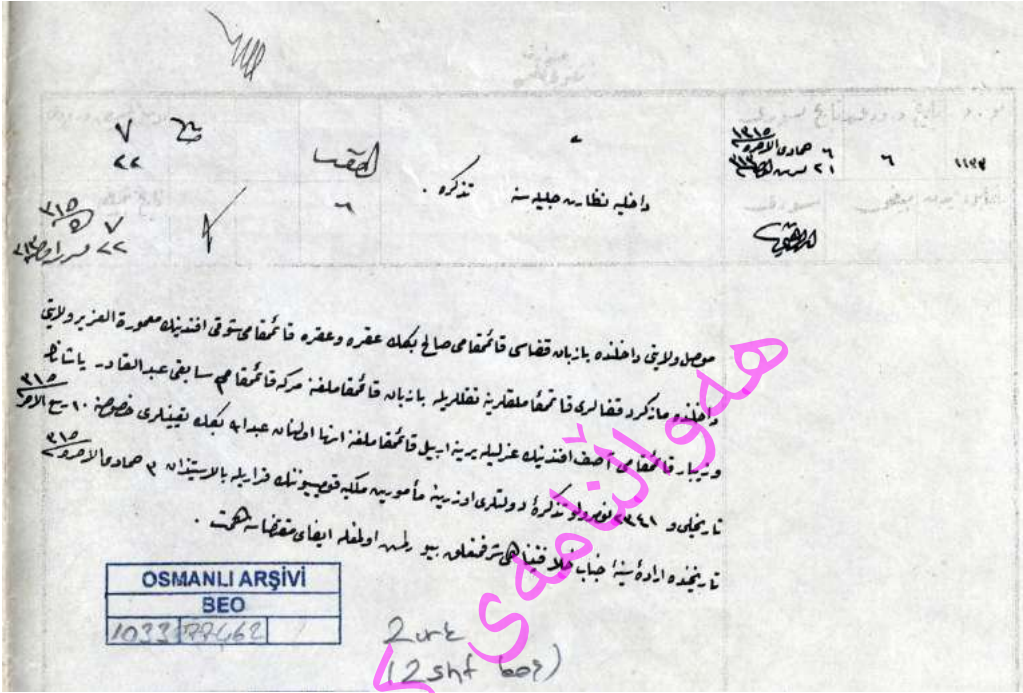 ١١٩٣
٦
١٣١٥
٦ جمادى الاخره
٢١
داخليه نظارت جليله سنه تذكره .
٧
٢٢
٣١٥
٧
٢٢
موصل ولايتى داخلنده بازيان قضاسى قائمقامى صالح بكك عقره وعقره قائمقامى شوقى افندينك معمورة العزيز ولايتى
داخلنده مازكرد قضالرى قائمقاملقلرينه نقللريله بازيان قائمقاملغنه مركه قائمقام سابقى عبدالقادر پاشانك
وزيبار قائمقامى آصف افندينك عزليله يرينه اربيل قائمقاملغنه انها اولنان عبدالله بكك تعيينلرى خصوصنه ١٠ ربيع الاخر ٣١٥
تاريخلى و ٢٣٤١ نومرولو تذكرۀ دولتلرى اوزرينه مأمورين ملكيه قوميسيوننك قراريله بالاستيذان ٣ جمادى الاخره ٣١٥
تاريخنده ارادۀ سنيۀ جناب خلافتپناهى شرفتعلق بيورلمش اولمغله ايفاى مقتضاسنه همت .
هەوالنامەی
OSMANLI ARŞİVİ
BEO
1033 77462
2 vrk
(2 shf boş)